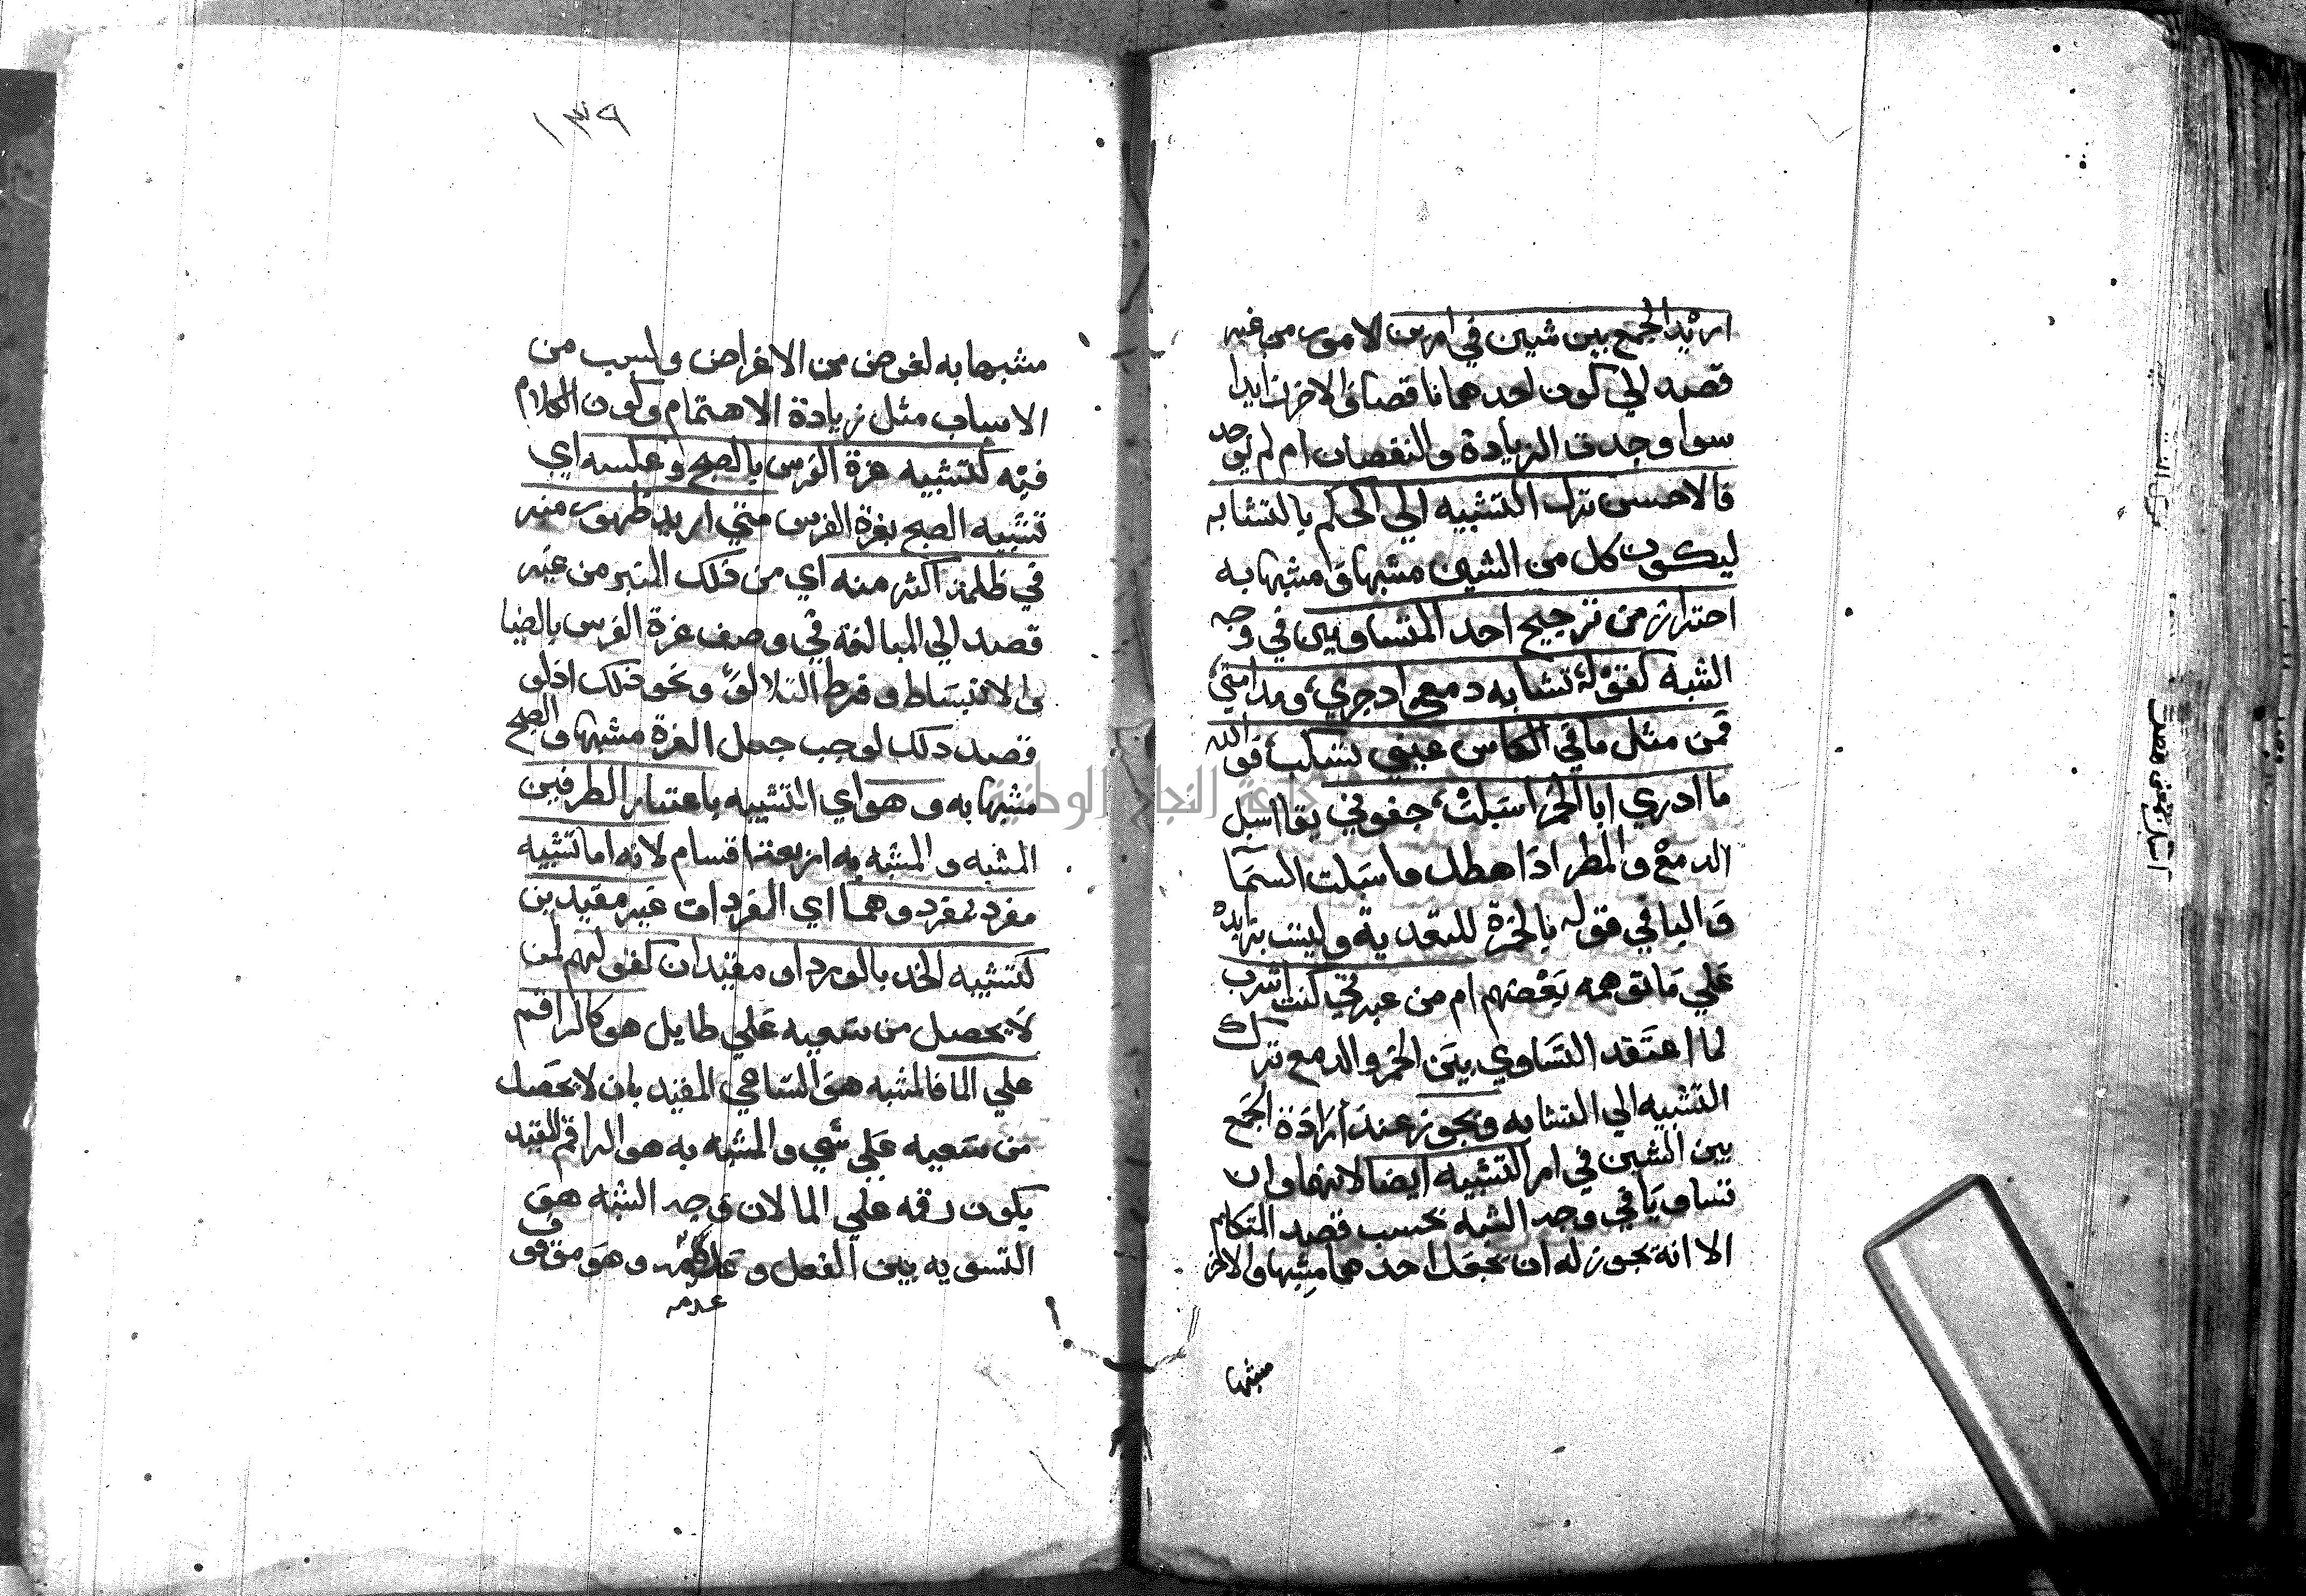 اريد الجمع بين شيين في امر من الامور من غير
قصد الي كون احدهما ناقصا والاخر زايدا
سوا وجدت الزيادة والنقصان ام لم توجد
فالاحسن ترك التشبيه الي الحكم بالتشابه
ليكون كل من الشيين مشبها ومشبها به
احترازا من ترجيح احد المتساويين في وجه
الشبه كقوله تشابه دمعي اذ جري ومدامتي
فمن مثل ما في الكاس عيني تسكب فوالله
ما ادري ابا الخمر اسبلت جفوني يقا اسبل
الدمع والمطر اذا هطل واسبلت السما
والبا في قوله بالخمرة للتعدية وليست بزايدة
علي ما توهمه بعضهم ام من عبرتي كنت اشرب
لما اعتقد التساوي بين الخمر والدمع ترك
التشبيه الي التشابه ويجوز عند ارادة الجمع
بين الشيين في امر التشبيه ايضا لانهما وان
تساويا في وجه الشبه بحسب قصد المتكلم
الا انه يجوز له ان يجعل احدهما مشبها والاخر
مشبها
١٣٩
مشبها به لغرض من الاغراض ولسبب من
الاسباب مثل زيادة الاهتمام وكون الكلام
فيه كتشبيه غرة الفرس بالصبح وعكسه اي
تشبيه الصبح بغرة الفرس متي اريد ظهور منير
في ظلمة اكثر منه اي من ذلك المنير من غير
قصد الي المبالغة في وصف غرة الفرس بالضيا
والانبساط وفرط التلالؤ ونحو ذلك اذ لو
قصد ذلك لوجب جعل الغرة مشبها والصبح
مشبها به وهو اي التشبيه باعتبار الطرفين
المشبه والمشبه به اربعة اقسام لانه اما تشبيه
مفرد بمفرد وهما اي المفردان غير مقيدين
كتشبيه الخد بالورد او مقيدان كقولهم لمن
لا يحصل من سعيه علي طايل هو كالراقم
علي الما فالمشبه هو الساعي المقيد بان لا يحصل
من سعيه علي شي والمشبه به هو الراقم المقيد
بكون رقمه علي الما لان وجه الشبه هو
التسويه بين الفعل و وهو موقوف
عدمه
جامعة النجاح الوطنية